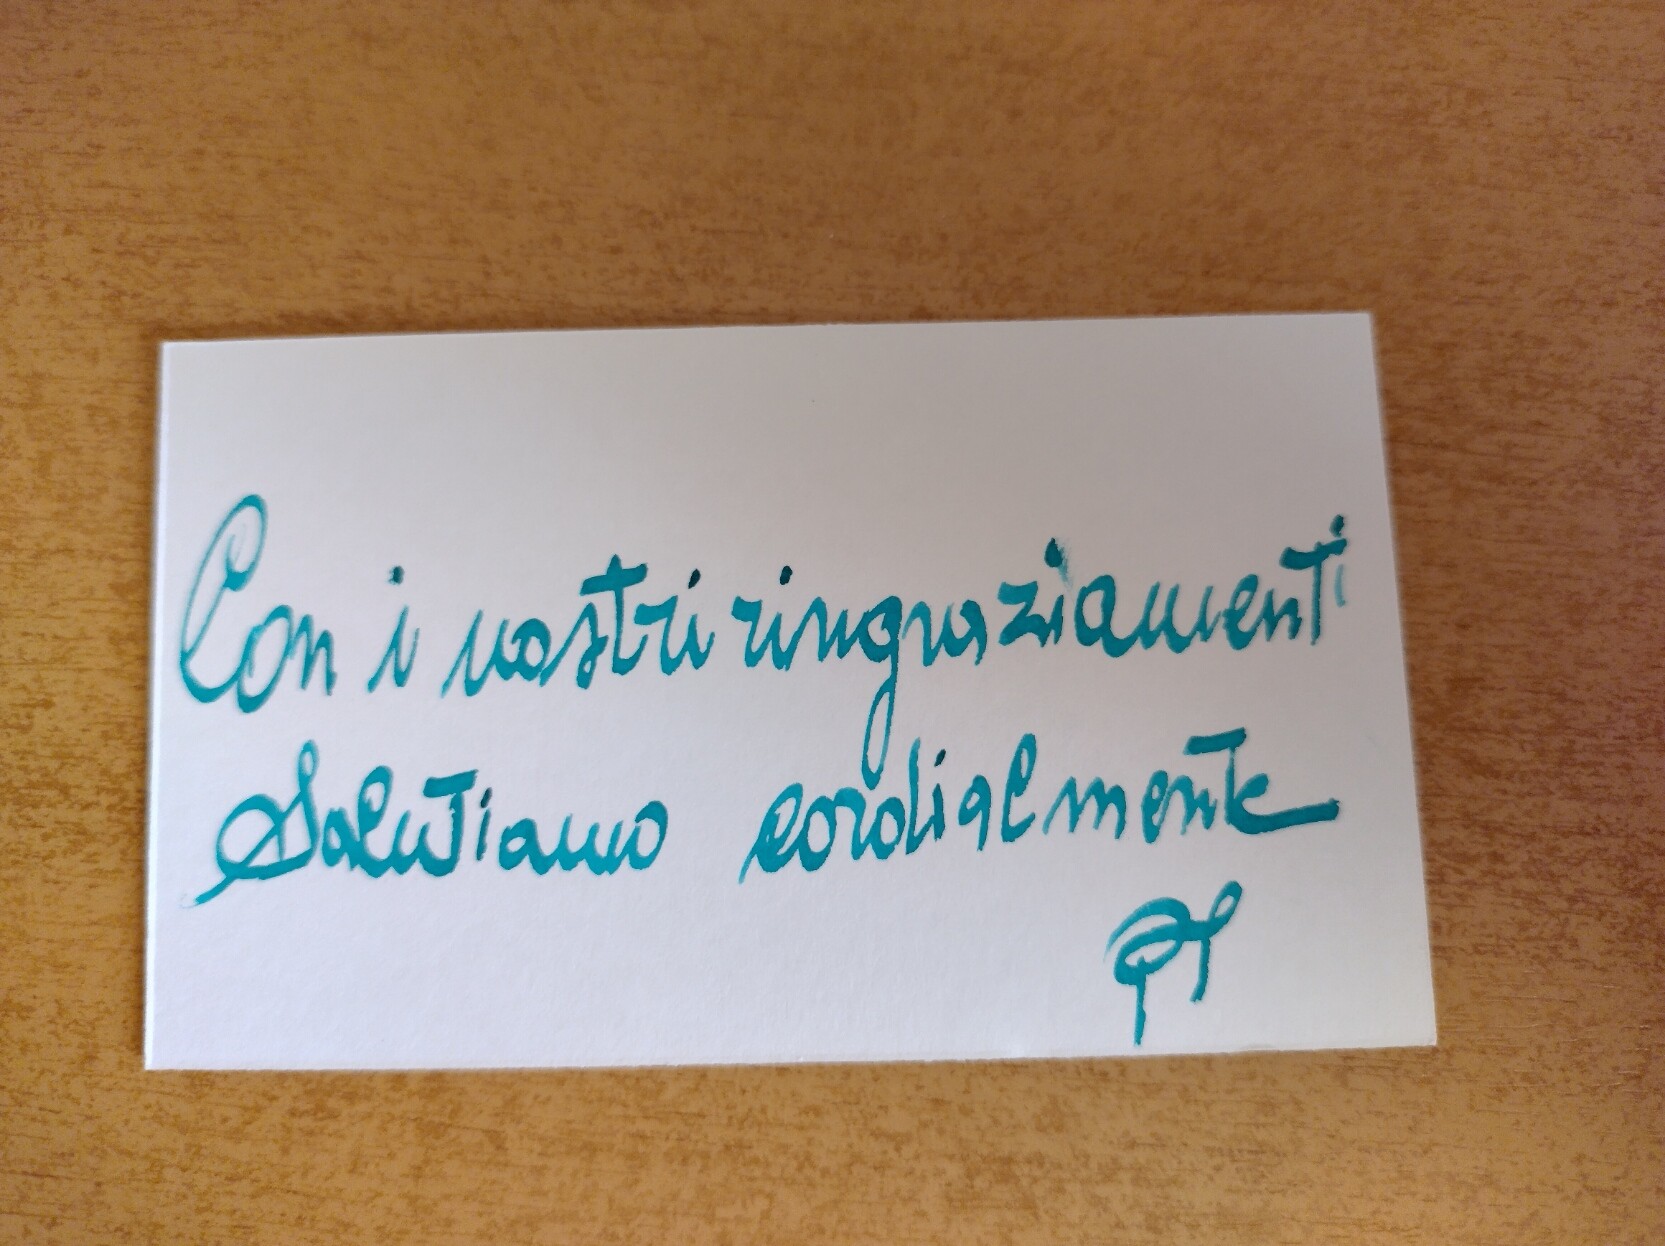 Con i nostri ringraziamenti
Salutiamo cordialmente